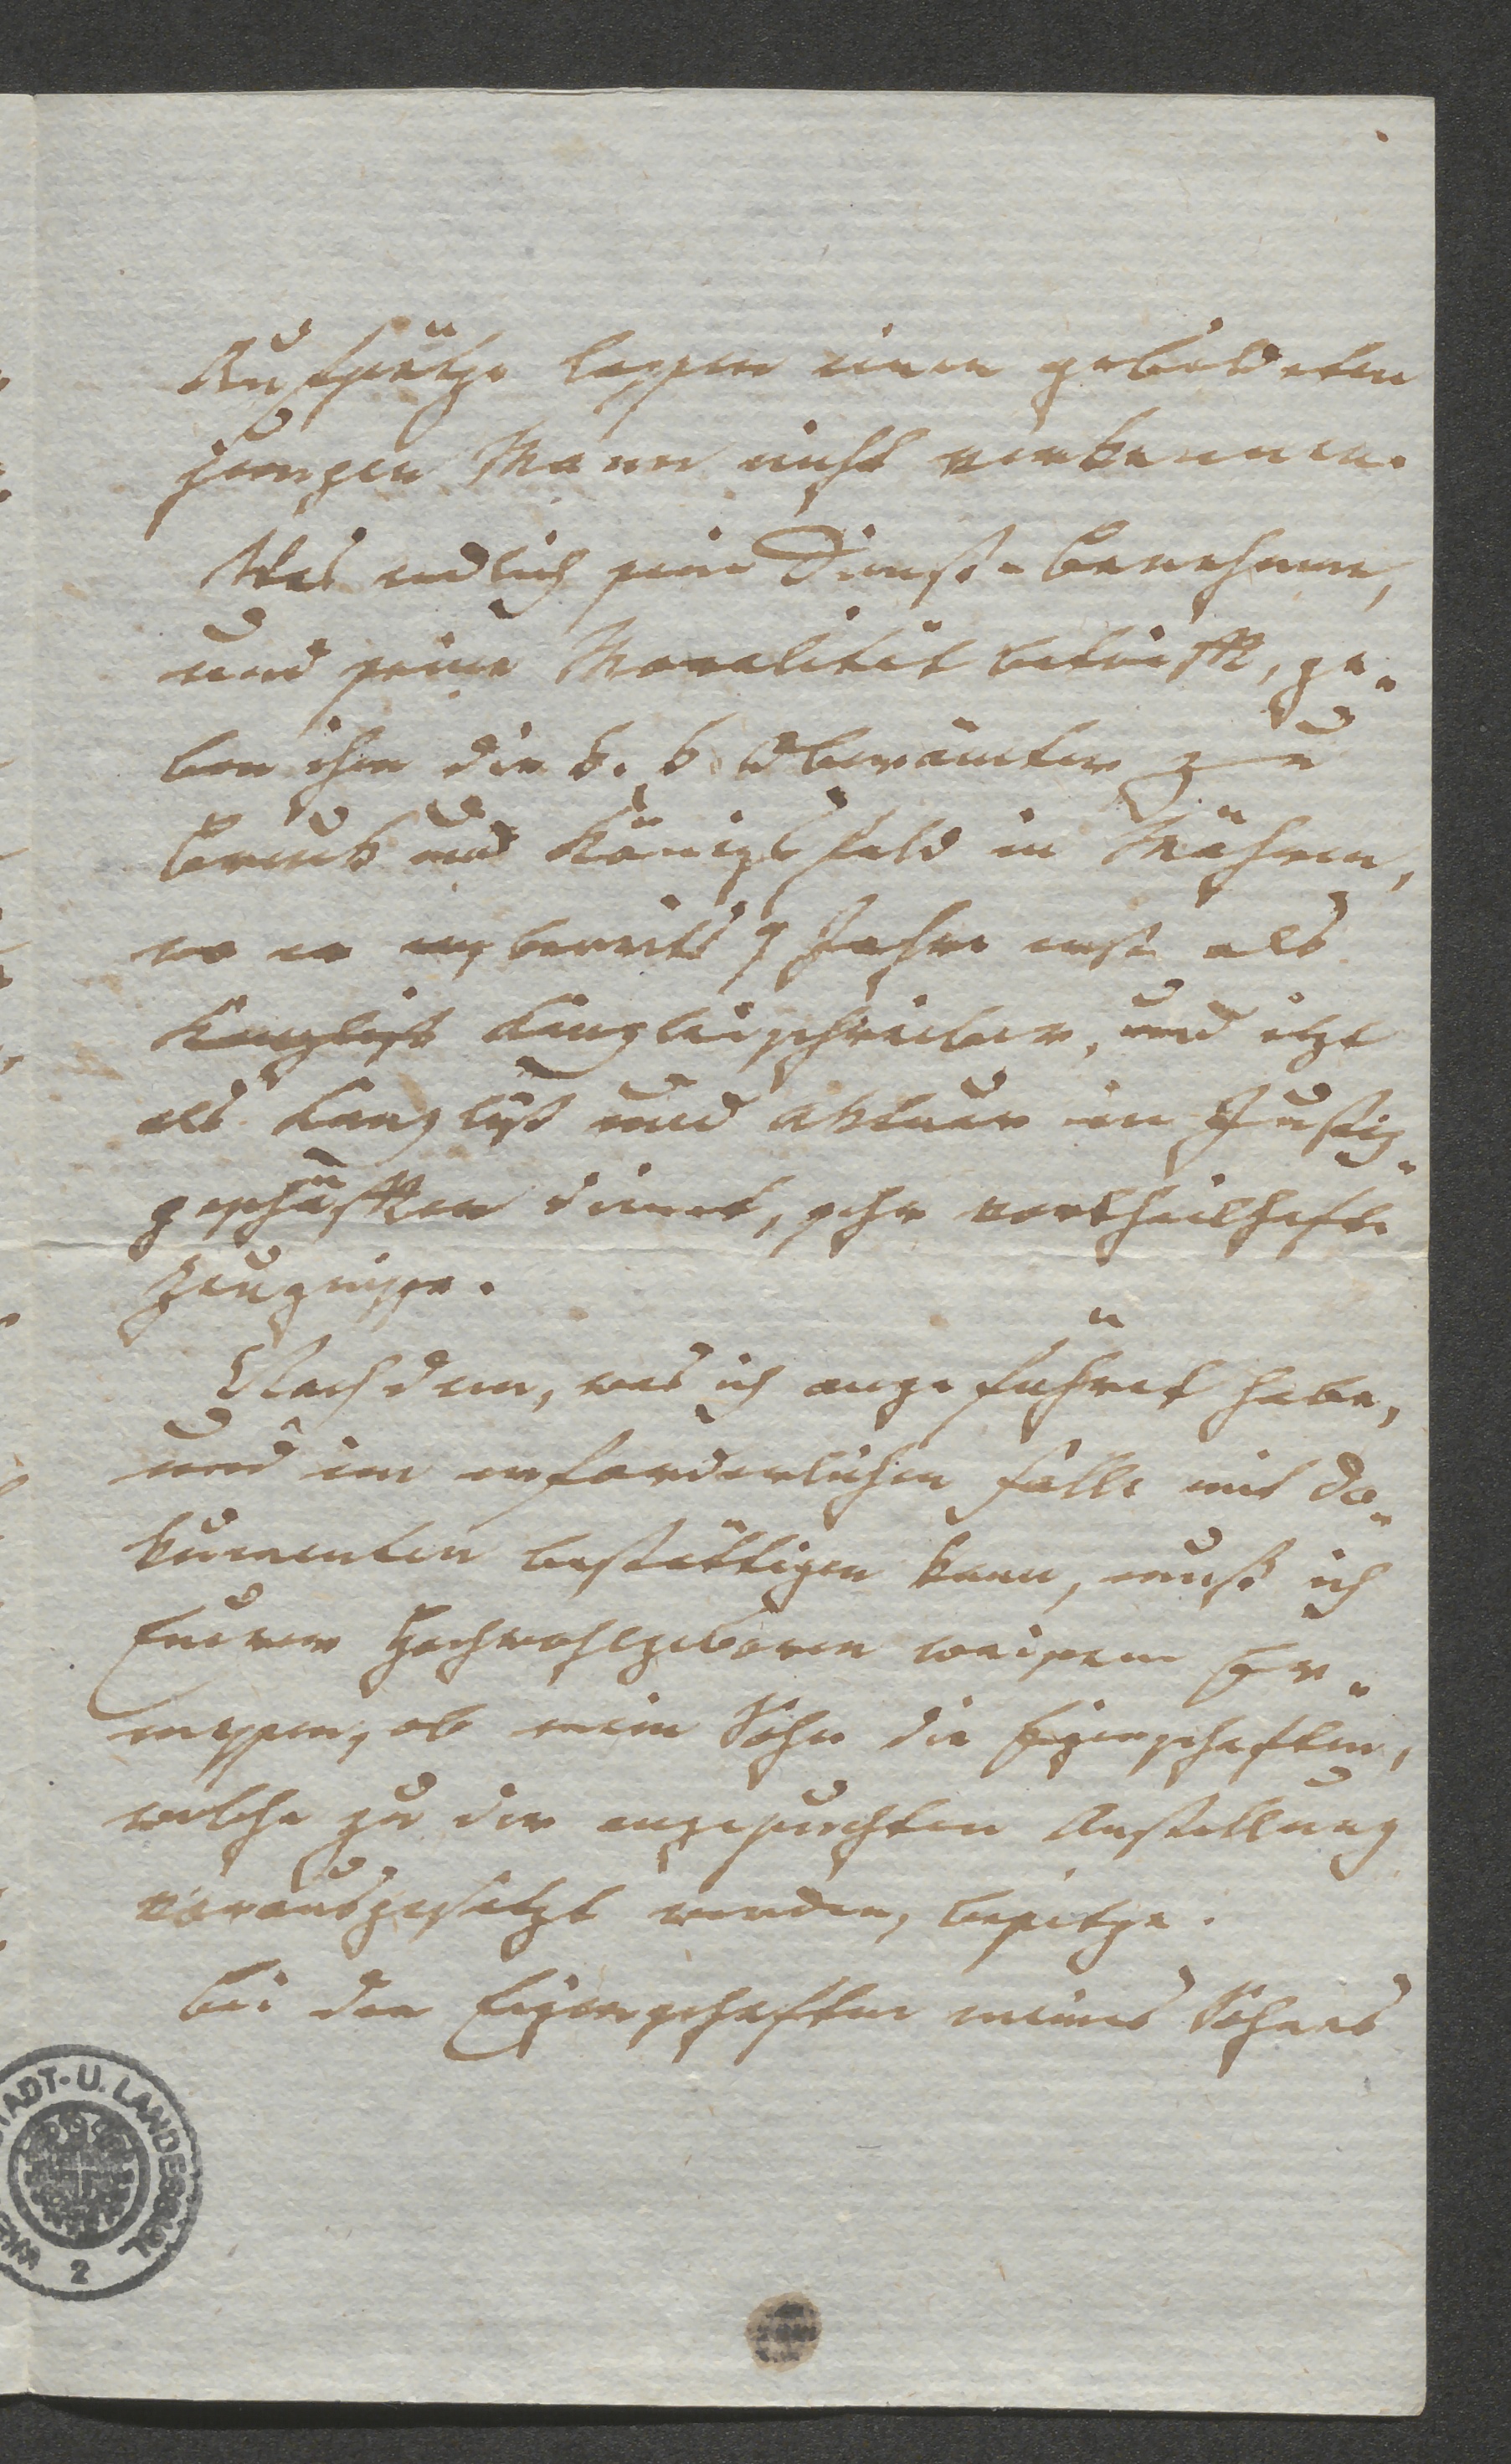 Aufsätze lassen einen gebildeten
jungen Mann nicht verkennen.
Was endlich sein Dienst-benehmen,
und seine Moralität betrifft, ge-
ben ihm die k. k. Oberämter zu
Bruck und Königsfeld in Mähren,
wo er bereits 7 Jahre erst als
Kanzlist Kanzleischreiber, und itzt
als Kanzlist und Aktuar in Justiz-
geschäfften dienet, sehr vortheilhafte
Zeugnisse.
Nach dem, was ich angeführet habe,
und im erforderlichen Falle mit Do-
kumenten bestättigen kann, muß ich
Euerer Hochwohlgeboren weisem Er-
messen, ob mein Sohn die Eigenschaften,
welche zu der angesuchten Anstellung
vorausgesetzt werden, besitze.
Bei den Eigenschaften meines Sohnes
STADT-U. LANDESBIBL
WIEN
2